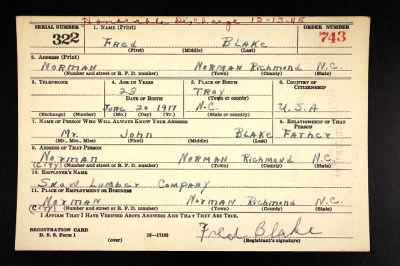 Honorable Discharge 12-13-45
SERIAL NUMBER 1. NAME (Print) ORDER NUMBER
322 Fred Blake 743
(First) (Middle) (Last)
2. ADDRESS (Print)
Norman Norman Richmond N.C.
(Number and street or R. F. D. number) (Town) (County) (State)
3. TELEPHONE 4. AGE IN YEARS 5. PLACE OF BIRTH 6. COUNTRY OF CITIZENSHIP
23 Troy
DATE OF BIRTH (Town or county)
June 20 1917 N.C. U.S.A
(Exchange) (Number) (Mo.) (Day) (Yr.) (State or country)
7. NAME OF PERSON WHO WILL ALWAYS KNOW YOUR ADDRESS 8. RELATIONSHIP OF THAT PERSON
Mr. John Blake Father
(Mr., Mrs., Miss) (First) (Middle) (Last)
9. ADDRESS OF THAT PERSON
Norman Norman Richmond N.C.
(City) (Number and street or R. F. D. number) (Town) (County) (State)
10. EMPLOYER'S NAME
Snow Lumber Company
11. PLACE OF EMPLOYMENT OR BUSINESS
Norman Norman Richmond N.C.
(City) (Number and street or R. F. D. number) (Town) (County) (State)
I AFFIRM THAT I HAVE VERIFIED ABOVE ANSWERS AND THAT THEY ARE TRUE.
REGISTRATION CARD
D. S. S. Form 1 (over) 16-17105 Fred Blake
(Registrant's signature)